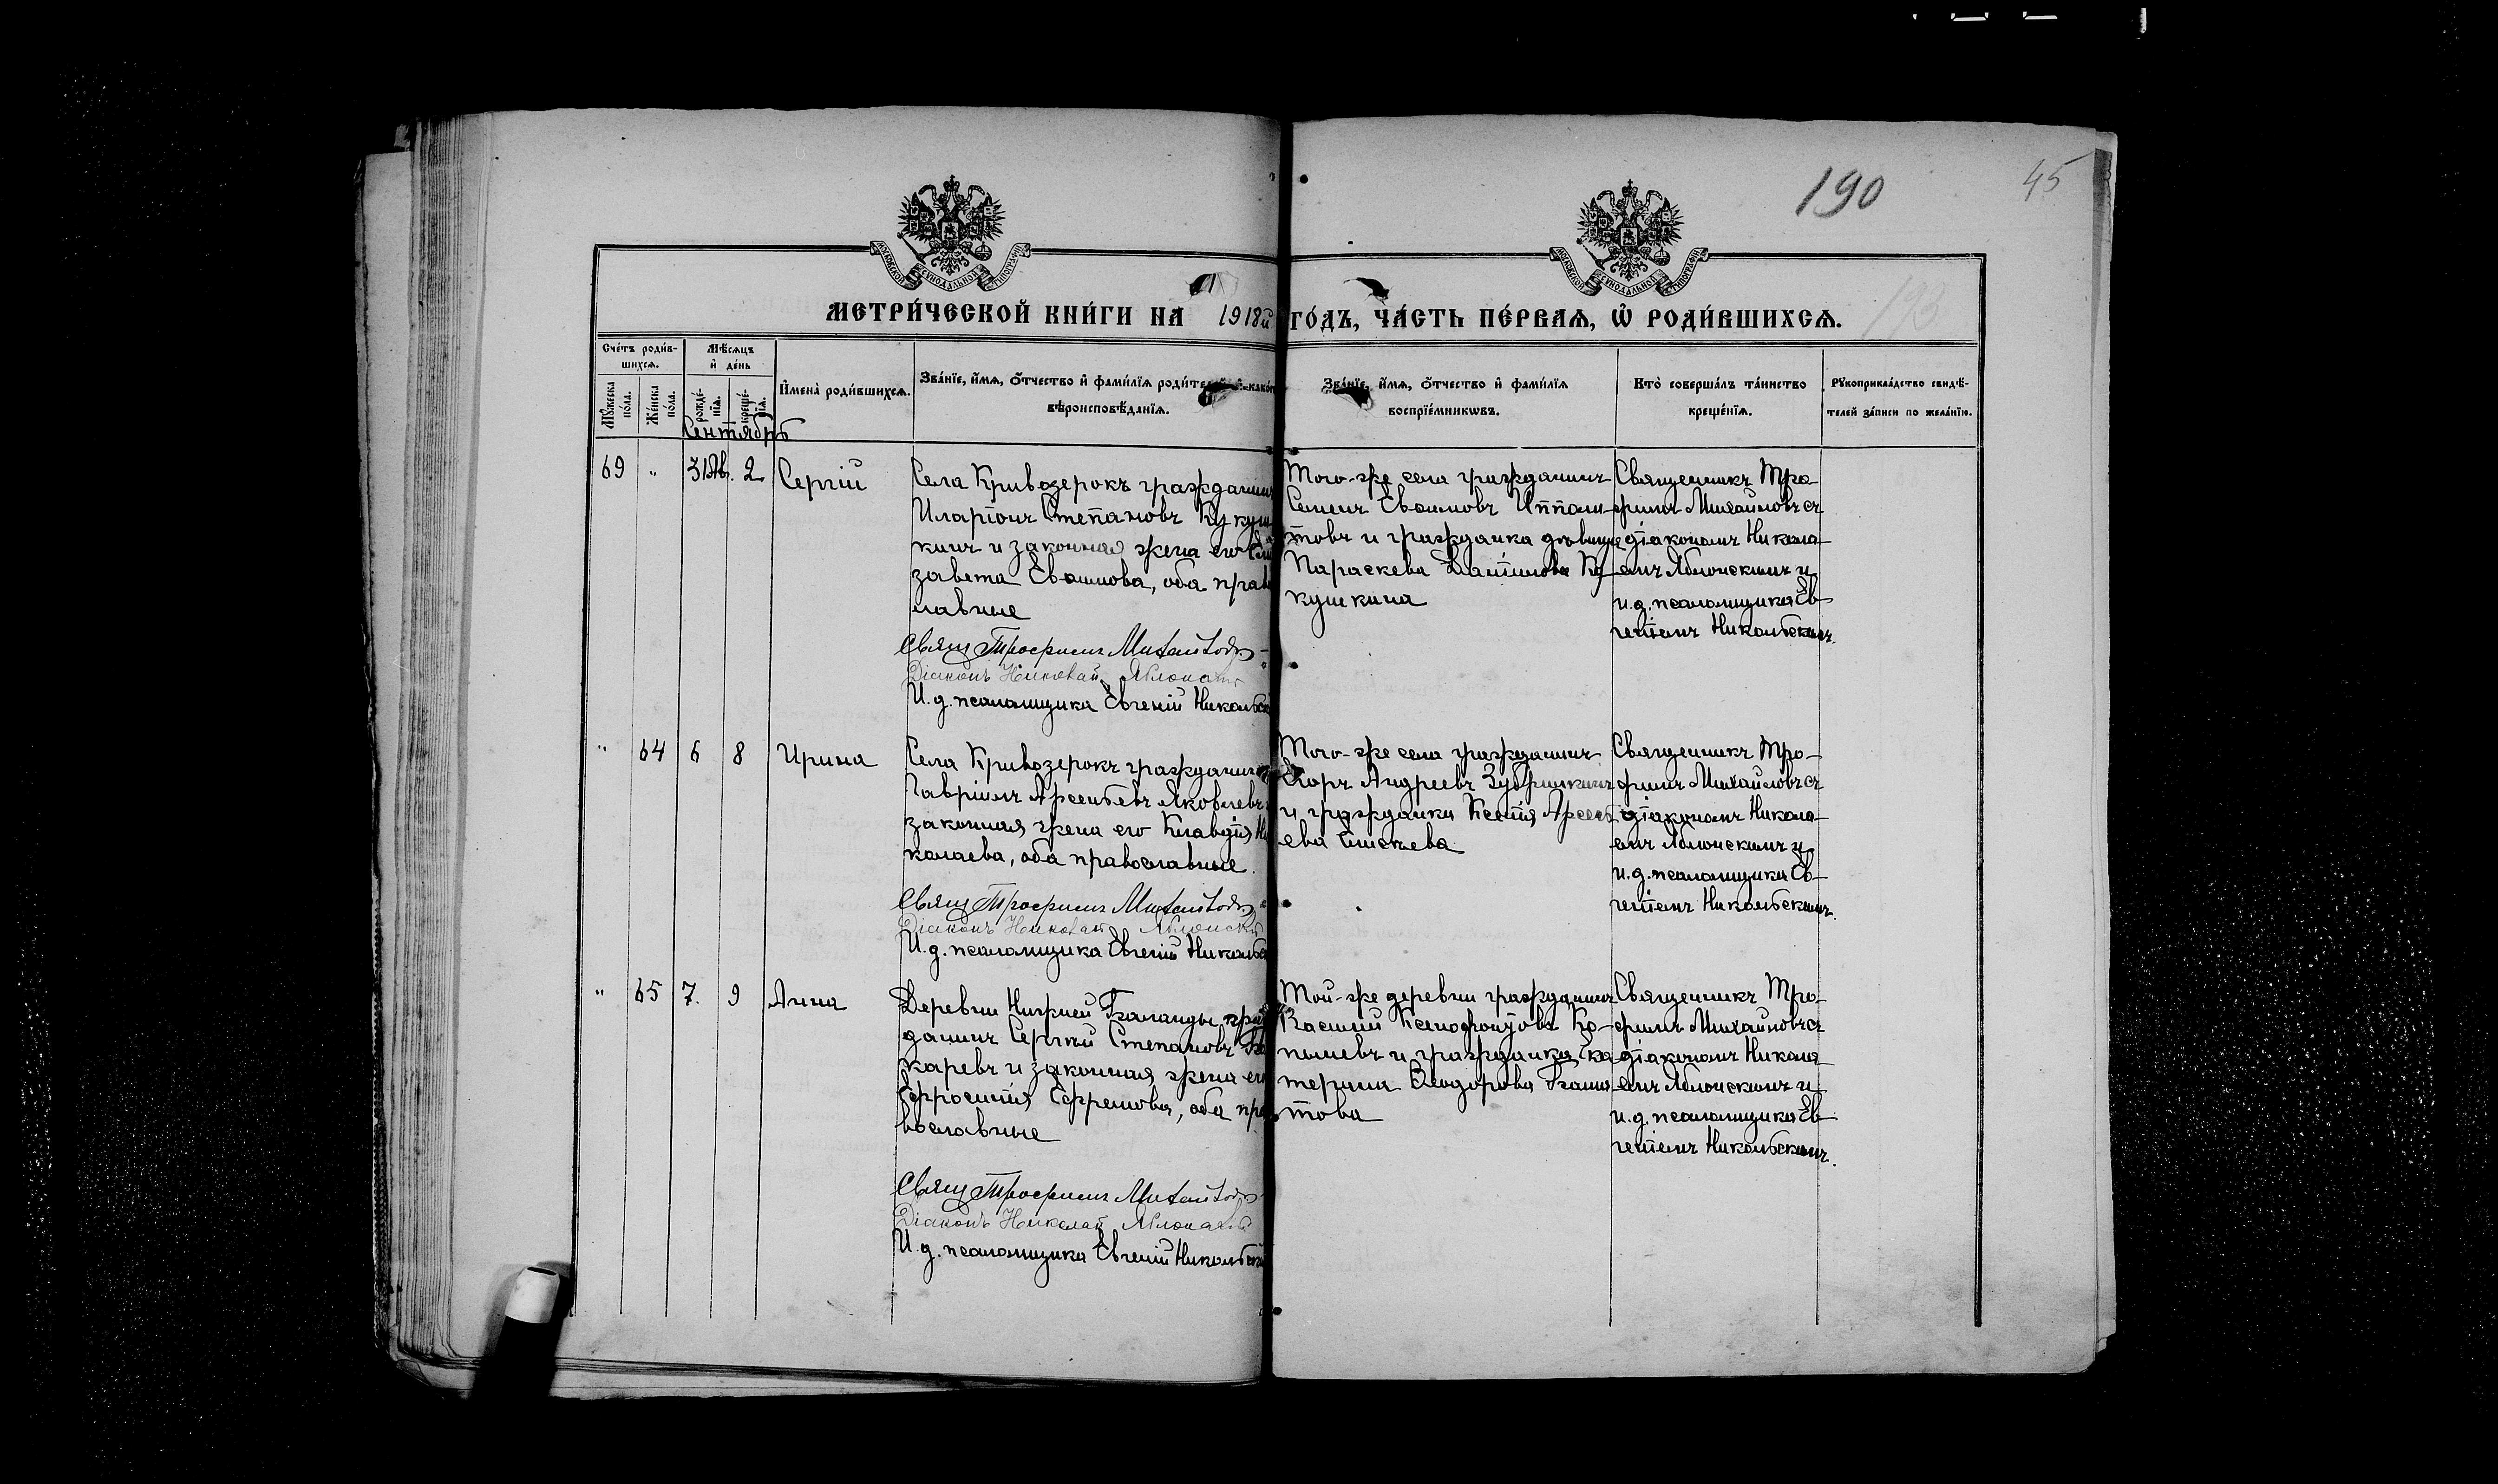 190
45
193
МЕТРИ́ЧЕСКОЙ КНИ́ГИ НА 1918й ГО́ДЪ, ЧА́СТЬ ПЕ́РВАЯ, Ѡ҆ РОДИ́ВШИХСЯ.
Сче́тъ роди́в-
шихся.
Мѣ́сяцъ
и҆ де́нь
Мꙋ́жеска
по́ла.
Же́нска
по́ла.
рожде́-
нїя.
креще́-
нїя.
И҆мена̀ роди́вшихся.
Зва́нїе, и҆́мя, ѻ҆́тчество и҆ фами́лїя роди́телей
вѣроисповѣ́данїя.
Зва́нїе, и҆́мя, ѻ҆́тчество и҆ фами́лїя
воспрїе́мникѡвъ.
Кто̀ соверша́лъ та́инство
креще́нїя.
Рꙋкоприкла́дство свидѣ́-
телей за́писи по жела́нїю.
Сентябрь
69 " 31 Ав. 2 Сергій
Села Кривозерокъ гражданинъ
Иларіонъ Степановъ Кукуш
кинъ и законная жена его Ели
завета Евфимова, оба право
славные
Свящ Трофимъ Михайловъ
Діаконъ Николай Яблонскій
И. д. псаломщика Евгеній Никольск
Того-же села гражданинъ
Семенъ Евфимовъ Ипполи-
товъ и гражданка дѣвица
Параскева Ку-
кушкина
Священникъ Тро-
фимъ Михайловъ съ
діакономъ Никола-
емъ Яблонскимъ и
и. д. псаломщика Ев-
геніемъ Никольскимъ.
" 64 6 8 Ирина
Села Кривозерокъ гражданинъ
Гавріилъ Арсентьевъ Яковлевъ
законная жена его Клавдія Ни
колаева, оба православные.
Свящ Трофимъ Михайловъ
Діаконъ Николай Яблонскій
И. д. псаломщика Евгеній Никольс
Того-же села гражданинъ
Егоръ Андреевъ
и гражданка Ксенія Арсенть
ева Елисеева
Священникъ Тро-
фимъ Михайловъ съ
діакономъ Никола-
емъ Яблонскимъ и
и. д. псаломщика Ев-
геніемъ Никольскимъ.
" 65 7. 9 Анна
Деревни Нижней граж
данинъ Сергѣй Степановъ
каревъ и законная жена его
Ефросинія Ефремова, оба пра
вославные
Свящ Трофимъ Михайловъ
Діаконъ Николай Яблонскій
И. д. псаломщика Евгеній Никольскі
Той-же деревни гражданинъ
Василій Ксенофонтовъ Ко-
пыловъ и гражданка Ека-
терина Ѳеодорова
това
Священникъ Тро-
фимъ Михайловъ съ
діакономъ Никола-
емъ Яблонскимъ и
и. д. псаломщика Ев-
геніемъ Никольскимъ.